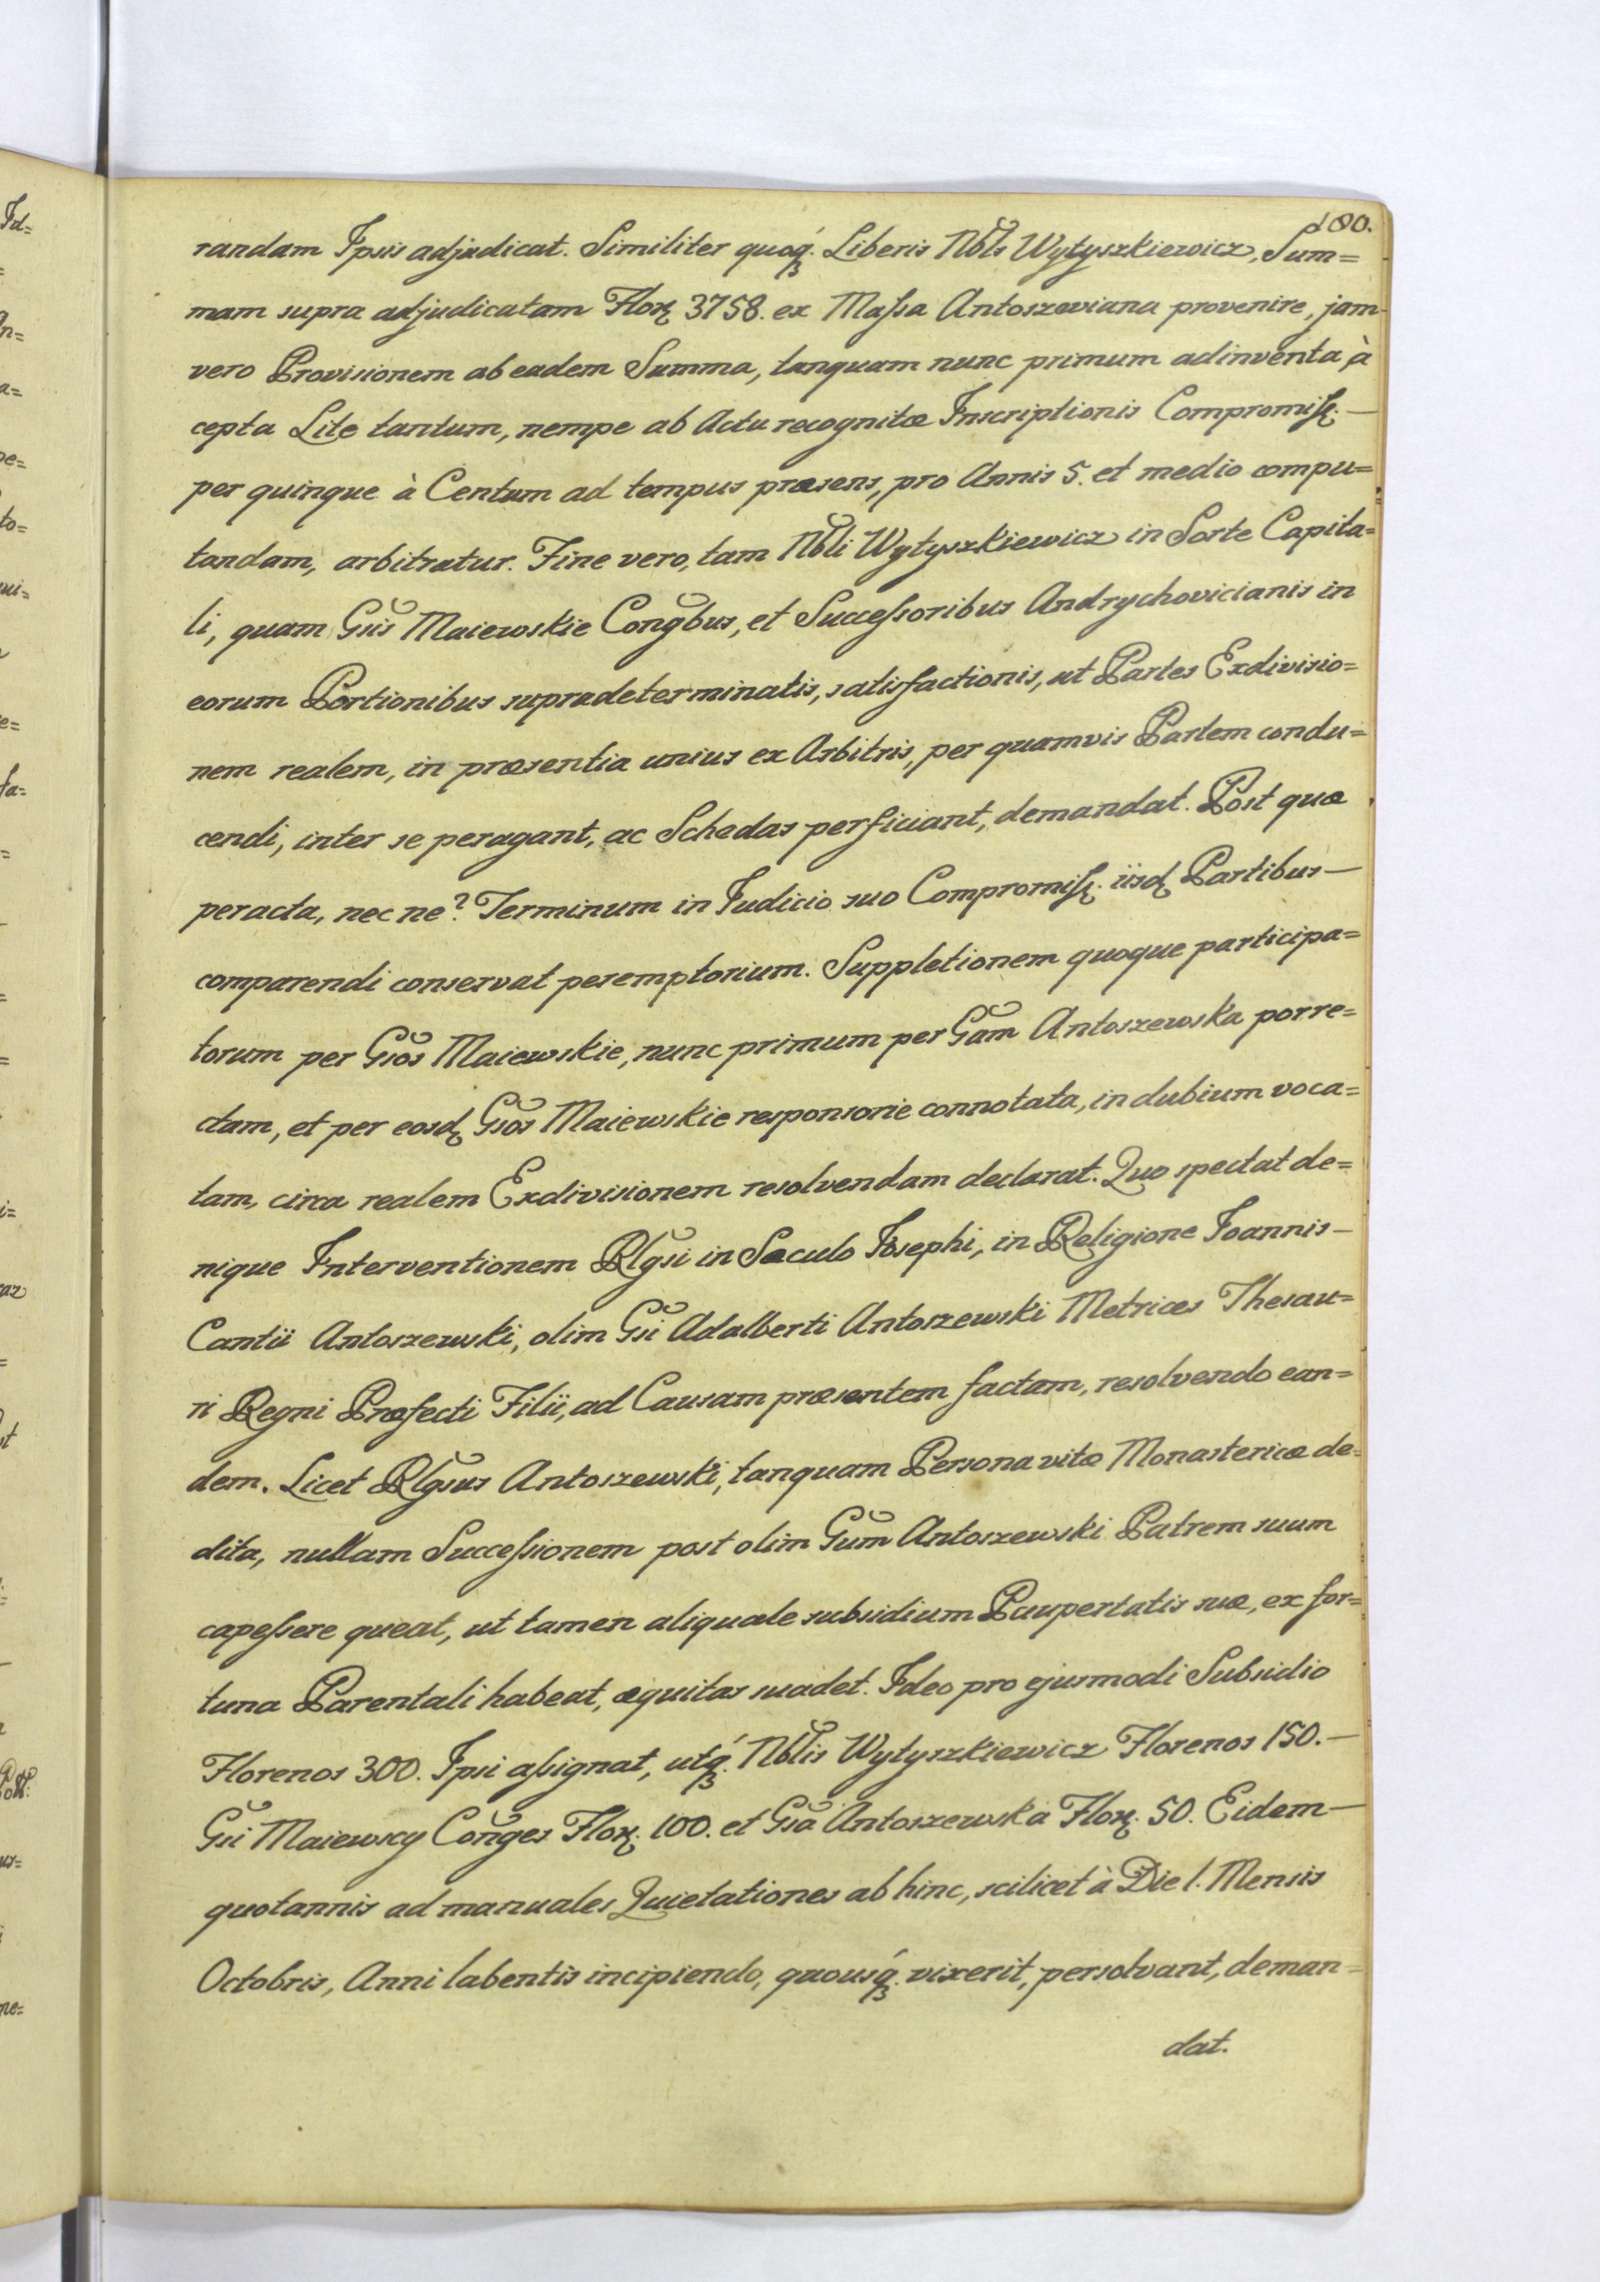 180.
randam Ipsis adjudicat. Similiter quoq́. Liberis Nb̃ls Wytyszkiewicz, Sum=
mam supra adjudicatam Flor̃ 3758. ex Maſsa Antoszeviana provenire, jam
vero Provisionem ab eadem Summa, tanquam nunc primum adinventa à
cepta Lite tantum, nempe ab Actu recognitæ Inscriptionis Compromiſs. —
per quinque à Centum ad tempus præsens, pro Annis 5. et medio compu=
tandam, arbitratur. Fine vero, tam Nb̃li Wytyszkiewicz in Sorte Capita=
li, quam Gsĩs Maiewskie Coñgbus, et Succeſsoribus Andrychovicianis in
eorum Portionibus supradeterminatis, satisfactionis, ut Partes Exdivisio=
nem realem, in præsentia unius ex Arbitris, per quamvis Partem condu=
cendi, inter se peragant, ac Schedas perficiant, demandat. Post quæ
peracta, nec ne? Terminum in Judicio suo Compromiſs. iisd. Partibus —
comparendi conservat peremptorium. Suppletionem quoque participa=
torum per Gsõs Maiewskie, nunc primum per Gãm Antoszewska porre=
ctam, et per eosd. Gsõs Maiewskie responsorie connotata, in dubium voca=
tam, circa realem Exdivisionem resolvendam declarat. Quo spectat de=
nique Interventionem Rlg̃si in Sæculo Josephi, in Religione Joannis —
Cantii Antoszewski, olim Gsĩ Adalberti Antoszewski Metrices Thesau=
ri Regni Præfecti Filii, ad Causam præsentem factam, resolvendo ean=
dem. Licet Rlg̃sus Antoszewski, tanquam Persona vitæ Monastericæ de=
dita, nullam Succeſsionem post olim Gũm Antoszewski Patrem suum
capeſsere queat, ut tamen aliquale subsidium Paupertatis suæ, ex for=
tuna Parentali habeat, æquitas suadet. Ideo pro ejusmodi Subsidio
Florenos 300. Ipsi aſsignat, utq́. Nb̃lis Wytyszkiewicz Florenos 150. —
Gsĩ Maiewscy Coñges Flor̃. 100. et Gsã Antoszewska Flor̃. 50. Eidem —
quotannis ad manuales Quietationes ab hinc, scilicet à Die 1. Mensis
Octobris, Anni labentis incipiendo, quousq́. vixerit, persolvant, deman=
dat.